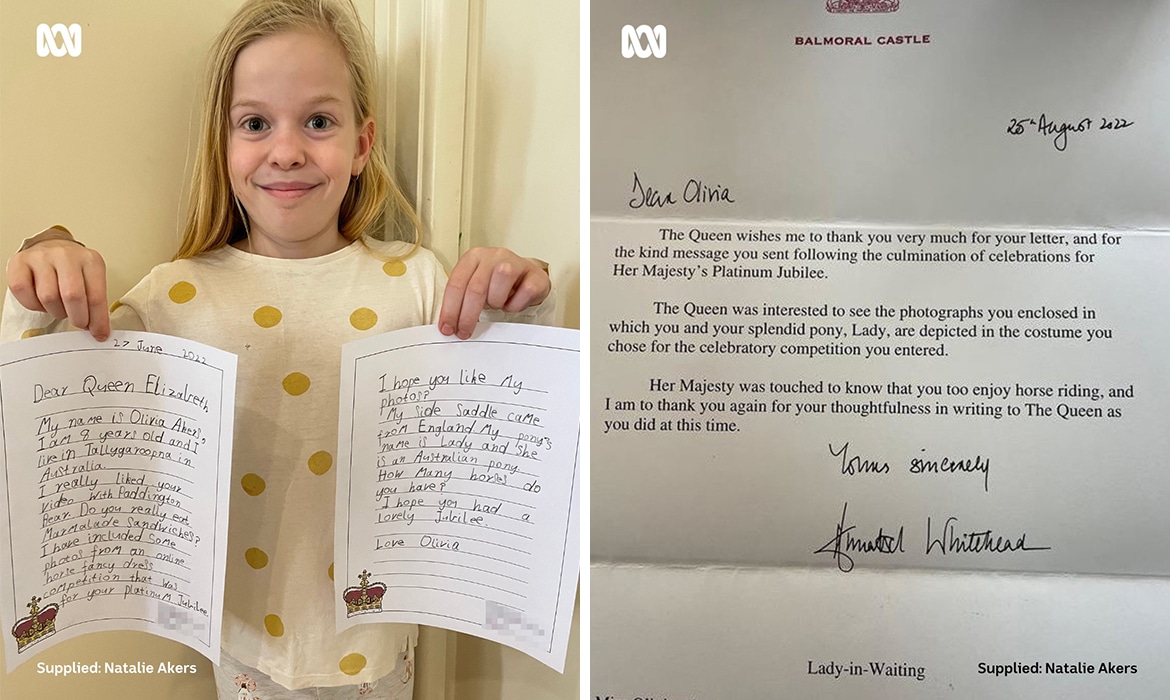 27 June 2022
Dear Queen Elizabeth
My name is Olivia Akers,
I am 8 years old and I
live in Tallygaroopna in
Australia.
I really liked your
video with Paddington
Bear. Do you really eat
Marmalade Sandwiches?
I have included some
photos from an online
horse fancy dress
competition that was
for your platinum Jubilee
I hope you like My
photos?
My Side Saddle came
from England My pony's
name is Lady and She
is an Australian pony.
How Many horses do
you have?
I hope you had a
lovely Jubilee
Love Olivia
Supplied: Natalie Akers
BALMORAL CASTLE
25th August 2022
Dear Olivia
The Queen wishes me to thank you very much for your letter, and for
the kind message you sent following the culmination of celebrations for
Her Majesty's Platinum Jubilee.
The Queen was interested to see the photographs you enclosed in
which you and your splendid pony, Lady, are depicted in the costume you
chose for the celebratory competition you entered.
Her Majesty was touched to know that you too enjoy horse riding, and
I am to thank you again for your thoughtfulness in writing to The Queen as
you did at this time.
Yours sincerely
Annabel Whitehead
Lady-in-Waiting
Supplied: Natalie Akers